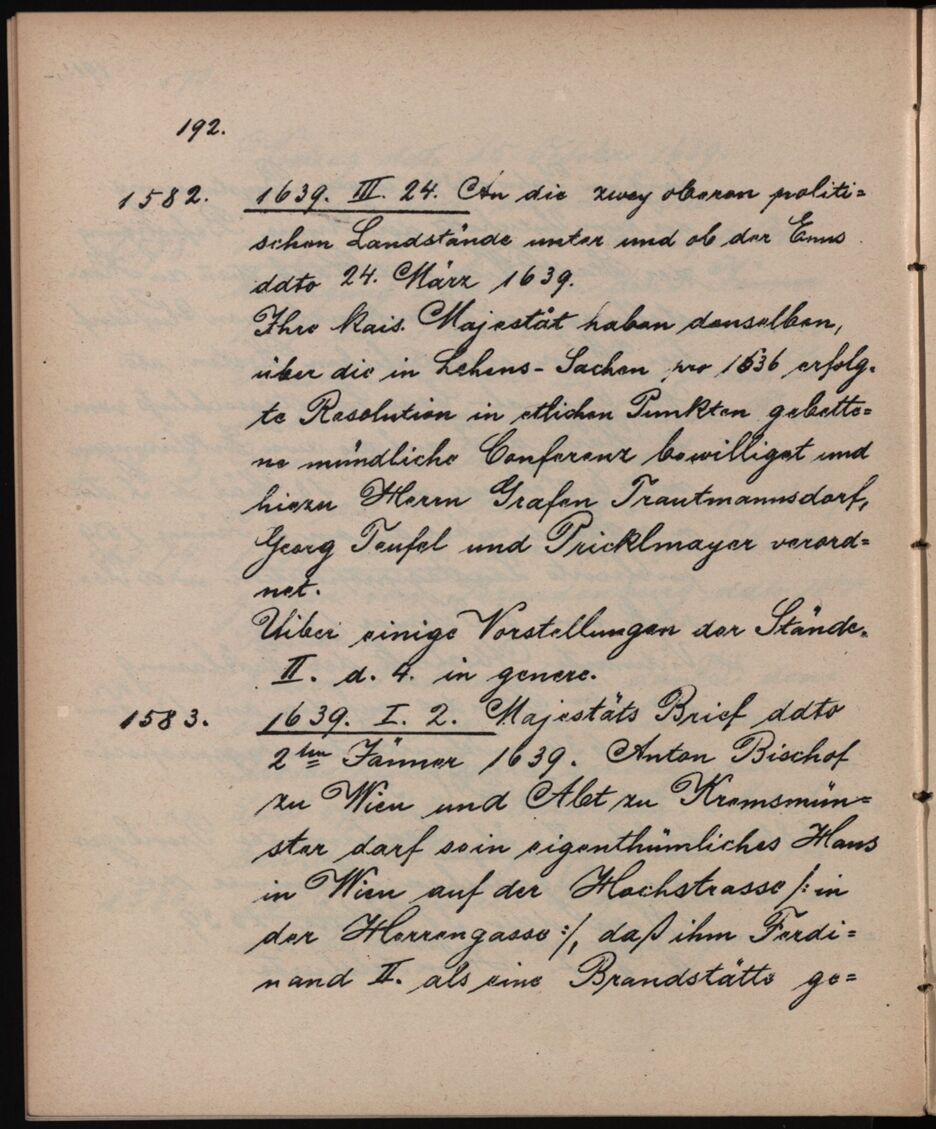 192.
1582. 1639. III. 24. An die zwey oberen politi=
schen Landstände unter und ob der Enns
ddto 24. März 1639.
Ihre kais. Majestät haben denselben,
über die in Lehens-Sachen pro 1636 erfolg=
te Resolution in etlichen Punkten gebette=
ne mündliche Conferenz bewilliget und
hiezu Herrn Grafen Trautmannsdorf,
Georg Teufel und Pricklmayer verord=
net.
Uiber einige Vorstellungen der Stände.
II. d. 4. in genere.
1583. 1639. I. 2. Majestäts Brief ddto
2ten Jänner 1639. Anton Bischof
zu Wien und Abt zu Kremsmün=
ster darf sein eigenthümliches Haus
in Wien auf der Hochstrasse /: in
der Herrengasse :/, daß ihm Ferdi=
nand II. als eine Brandstätte ge=